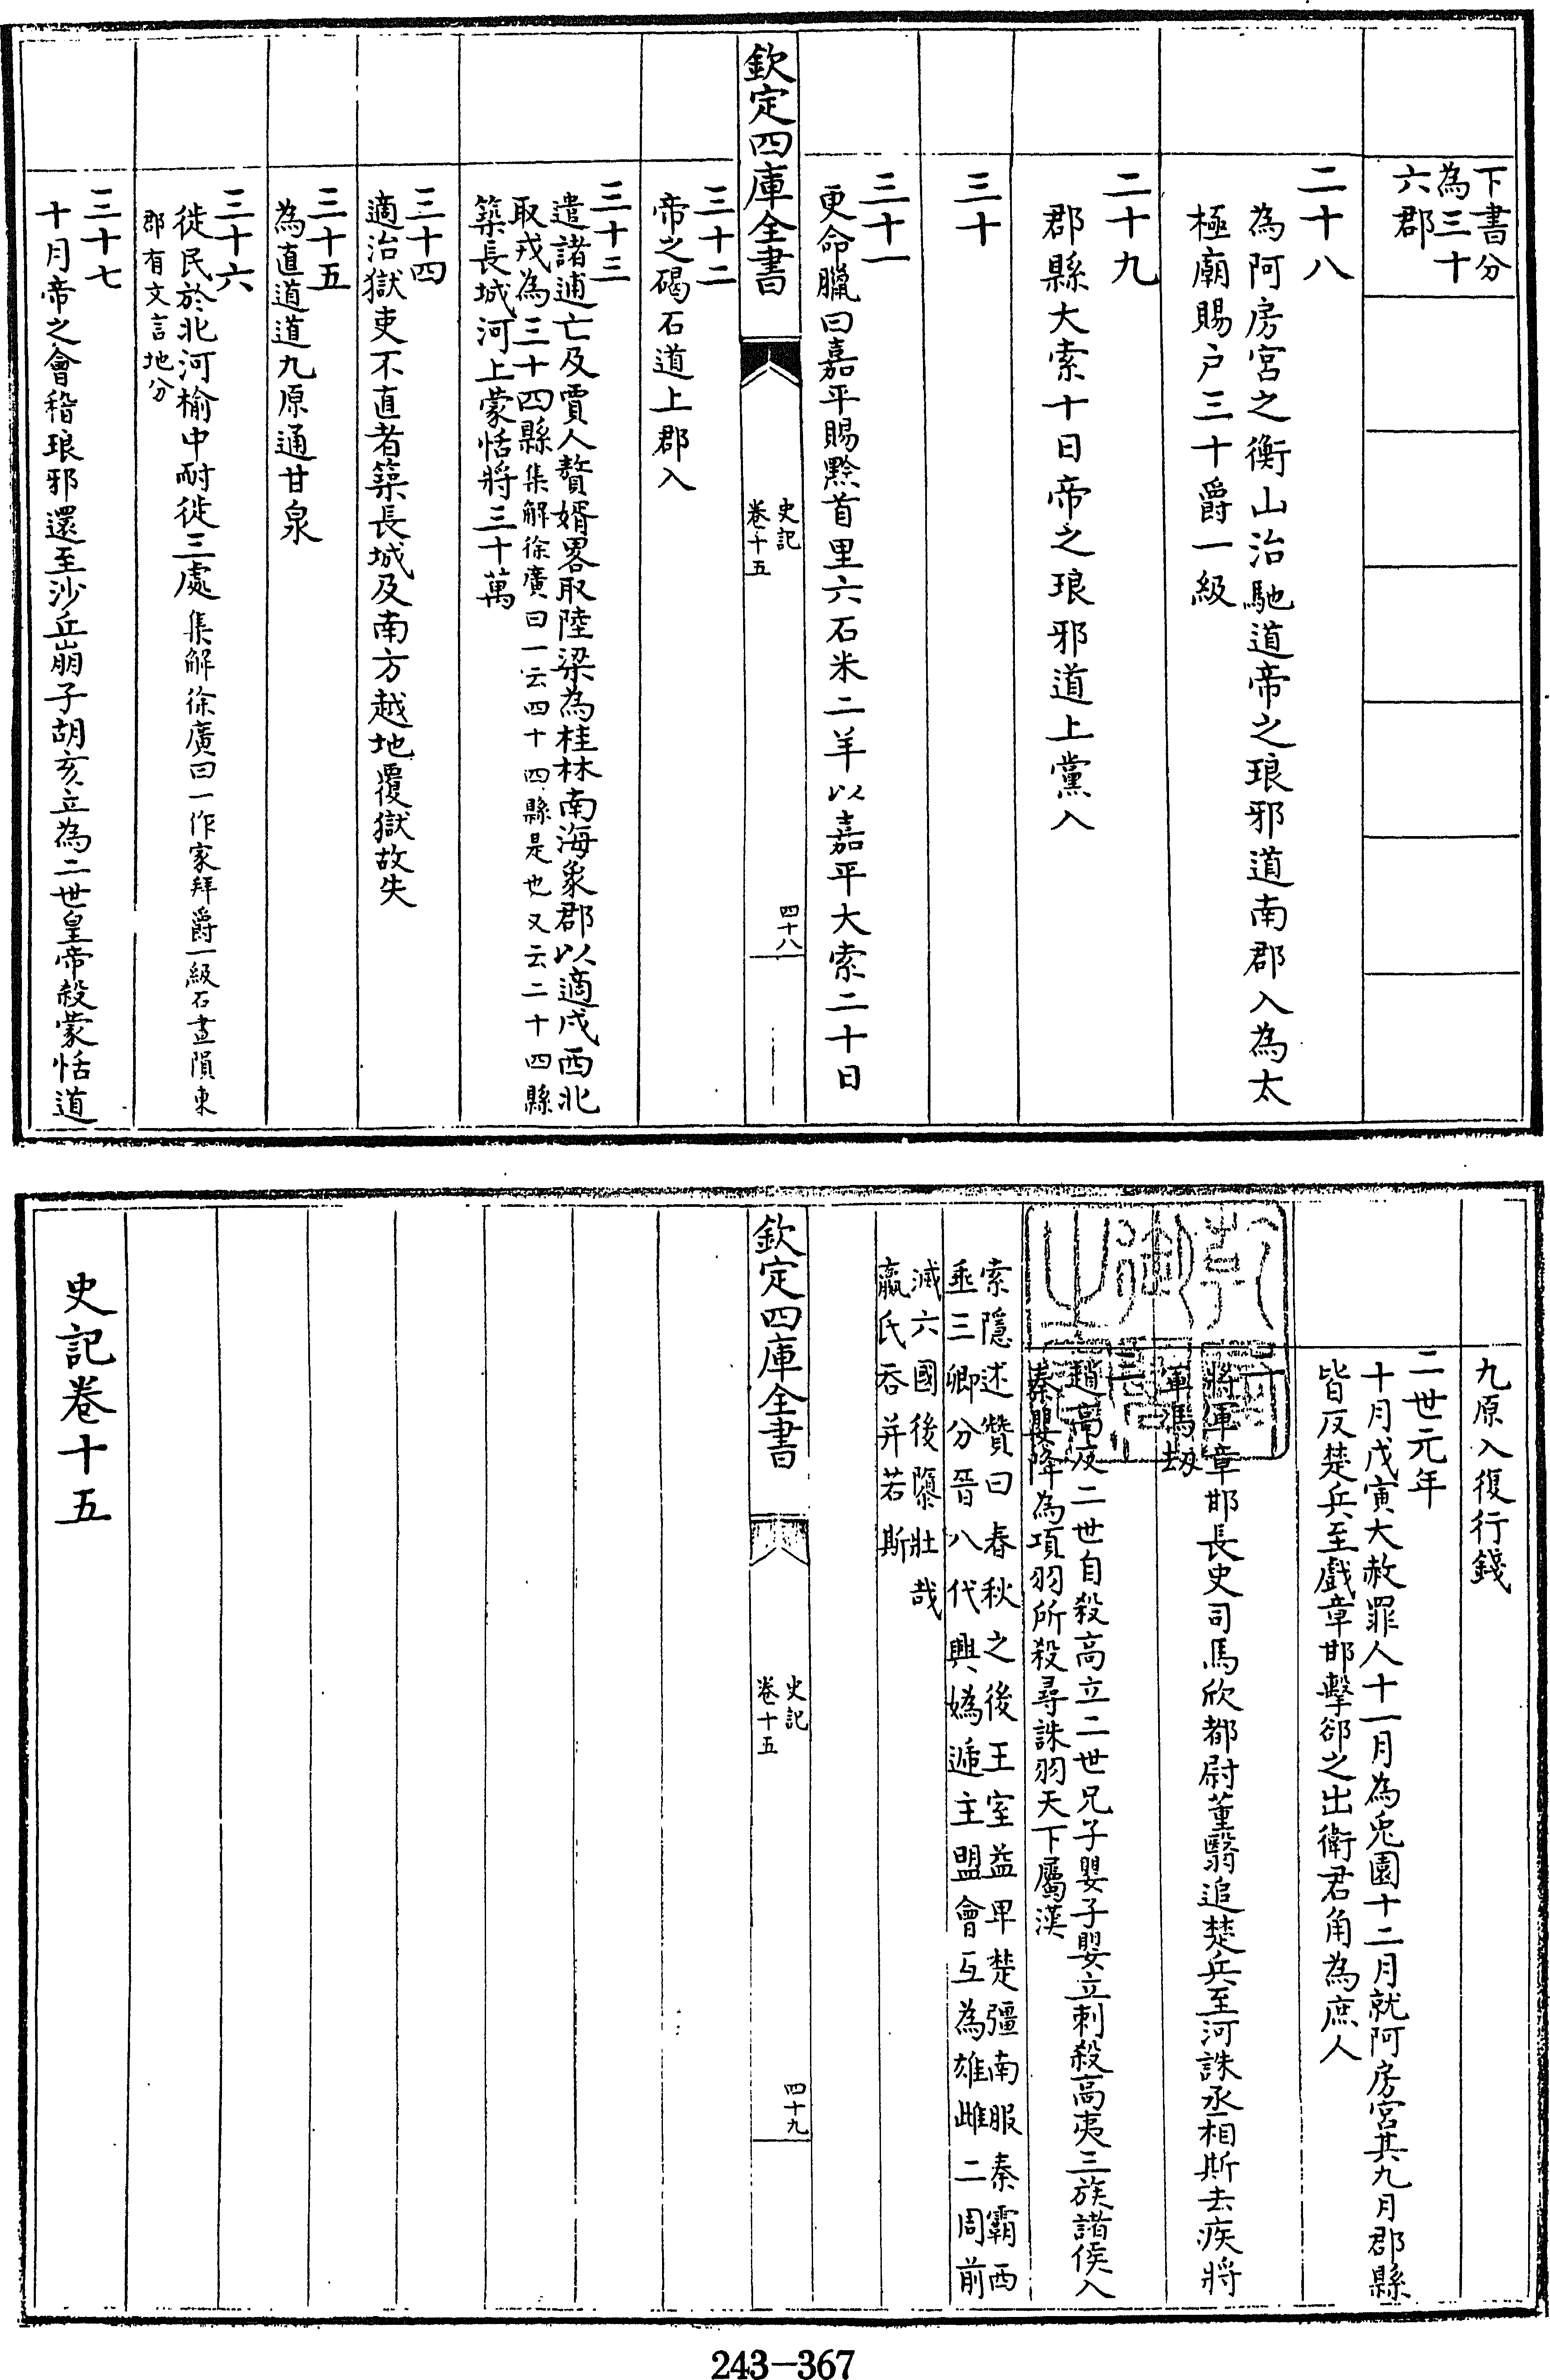 下書分
為三十
六郡
二十八
為阿房宮之衡山治馳道帝之琅邪道南郡入為太
極廟賜戶三十爵一級
二十九
郡縣大索十日帝之琅邪道上黨入
三十
三十一
更命臘曰嘉平賜黔首里六石米二羊以嘉平大索二十日
欽定四庫全書
史記
卷十五
四十八
三十二
帝之碣石道上郡入
三十三
遣諸逋亡及賈人贅壻畧取陸梁為桂林南海象郡以適戍西北
取戎為三十四縣集解徐廣曰一云四十四縣是也又云二十四縣
築長城河上蒙恬將三十萬
三十四
適治獄吏不直者築長城及南方越地覆獄故失
三十五
為直道道九原通甘泉
三十六
徙民於北河榆中耐徙三處集解徐廣曰一作家拜爵一級石晝隕東
郡有文言地分
三十七
十月帝之會稽琅邪還至沙丘崩子胡亥立為二世皇帝殺蒙恬道
九原入復行錢
二世元年
十月戊寅大赦罪人十一月為兎園十二月就阿房宮其九月郡縣
皆反楚兵至戲章邯擊郤之出衛君角為庶人
二
將軍章邯長史司馬欣都尉董翳追楚兵至河誅丞相斯去疾將
軍馮劫
三
趙高反二世自殺高立二世兄子嬰子嬰立刺殺高夷三族諸侯入
秦嬰降為項羽所殺尋誅羽天下屬漢
索隱述贊曰春秋之後王室益卑楚彊南服秦霸西
垂三卿分晉八代興媯遞主盟會互為雄雌二周前
滅六國後隳壯哉
嬴氏吞并若斯
欽定四庫全書
史記
卷十五
四十九
史記卷十五
243-367